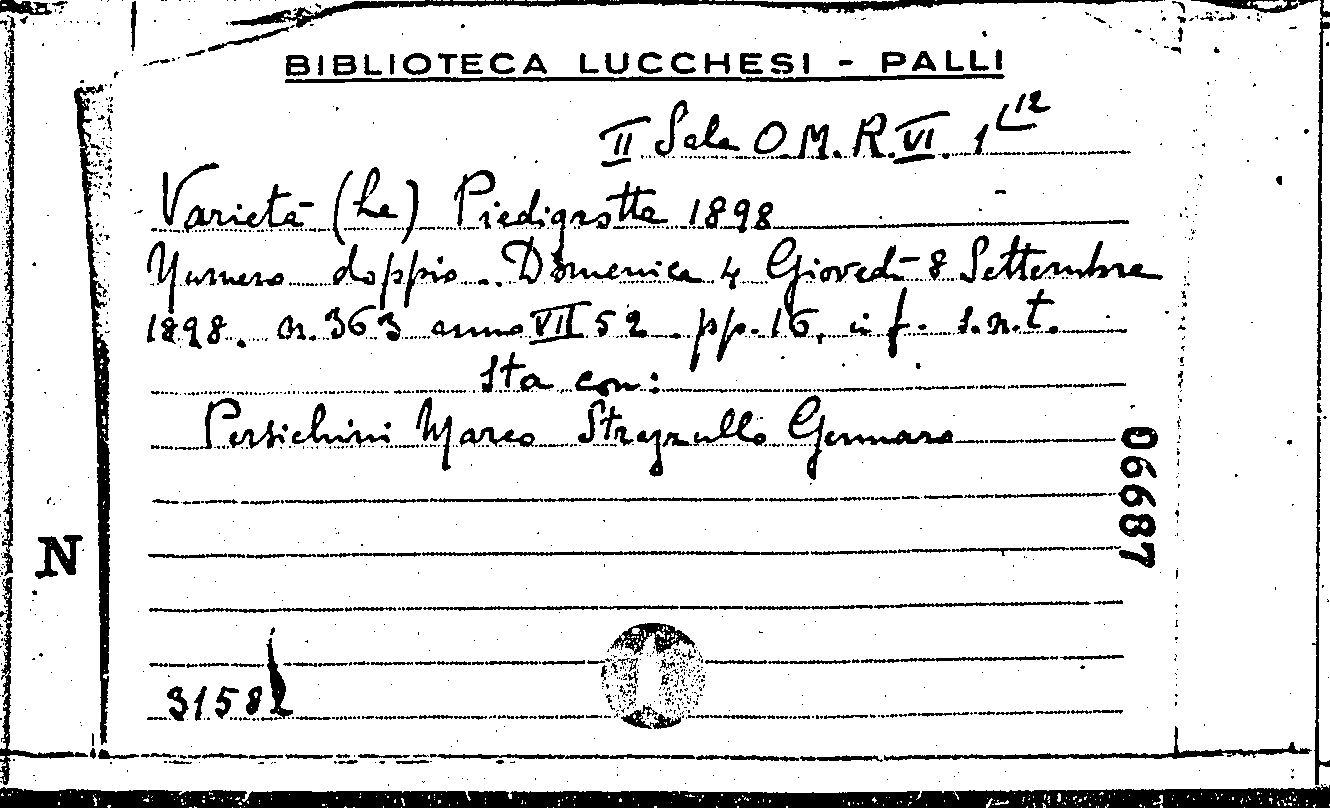 BIBLIOTECA LUCCHESI - PALLI
II Sala O.M. R.VI. 1 12
Varietà (La) Piedigrotta 1898
Numero doppio.. Domenica 4 Giovedì 8 Settembre
1898. n. 363 anno VII 52. pp. 16. in f. s.n.t.
Sta con:
Persichini Marco Strazzullo Gennaro
06687
N
31582